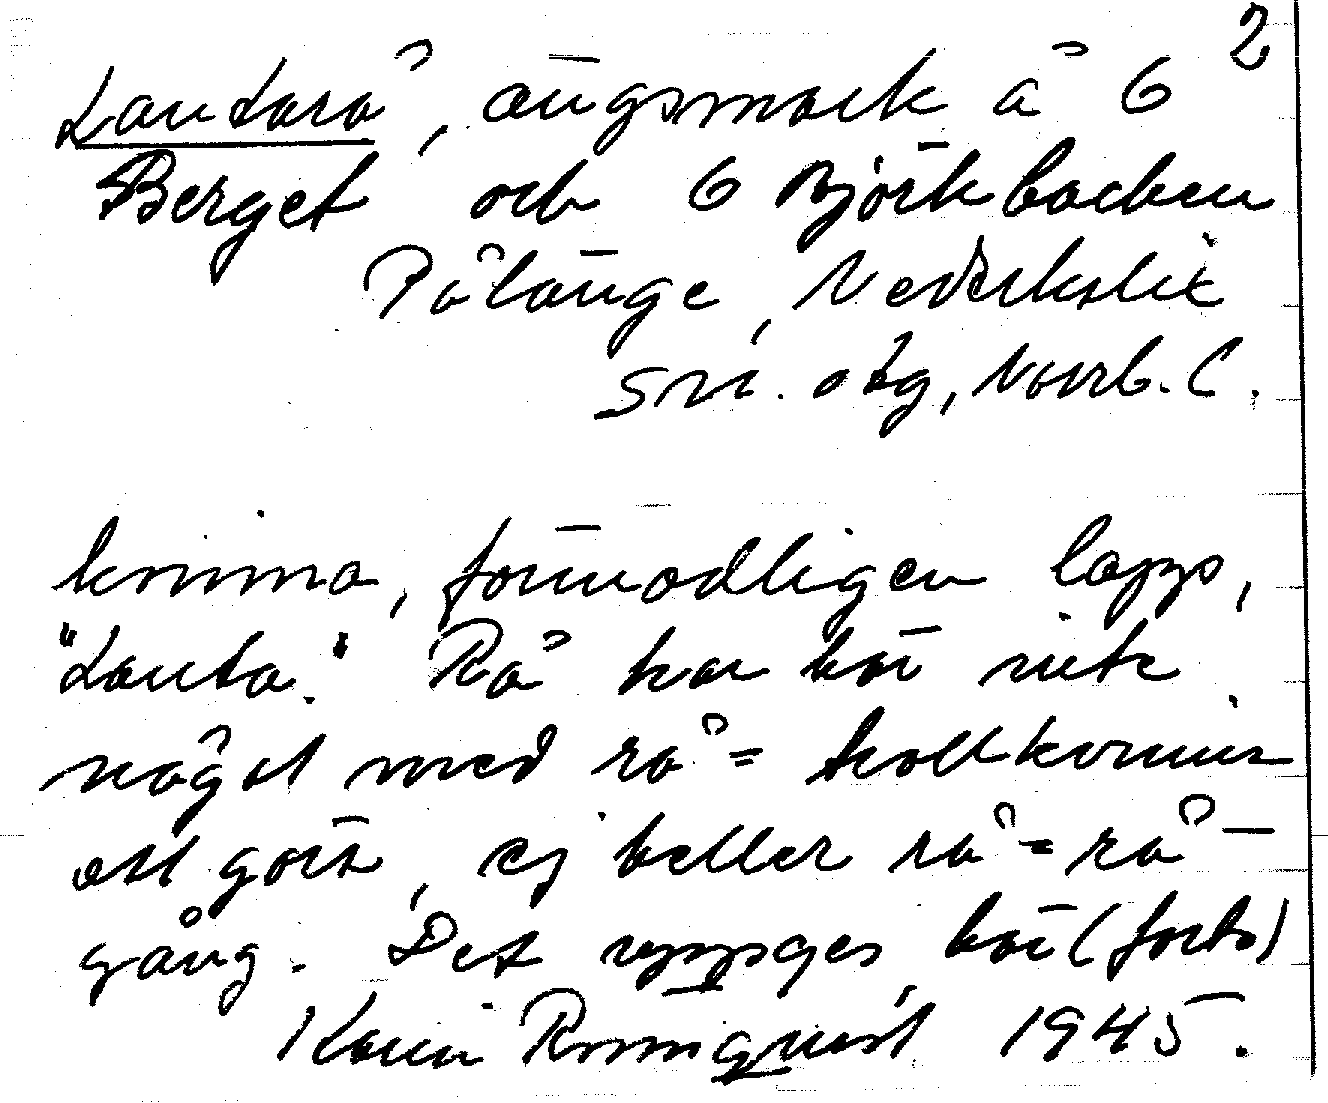 2
Lautarå, ängsmark å 6
Berget och 6 Björkbacken
Pålänge, Nederkalix
sn. otg, Norrb. l.
kvinna, förmodligen lapp,
"Lauta." Rå har här inte
något med rå = trollkvinna
att göra, ej heller rå = rå-
gång. Det uppges här (forts)
Karin Rönnquist 1945.